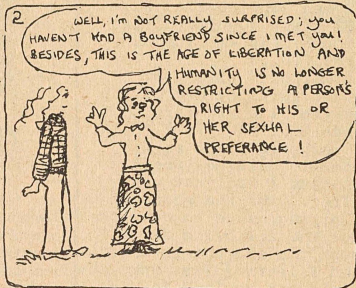 2
WELL, I'M NOT REALLY SURPRISED; YOU
HAVEN'T HAD A BOYFRIEND SINCE I MET YOU!
BESIDES, THIS IS THE AGE OF LIBERATION AND
HUMANITY IS NO LONGER
RESTRICTING A PERSON'S
RIGHT TO HIS OR
HER SEXUAL
PREFERANCE!